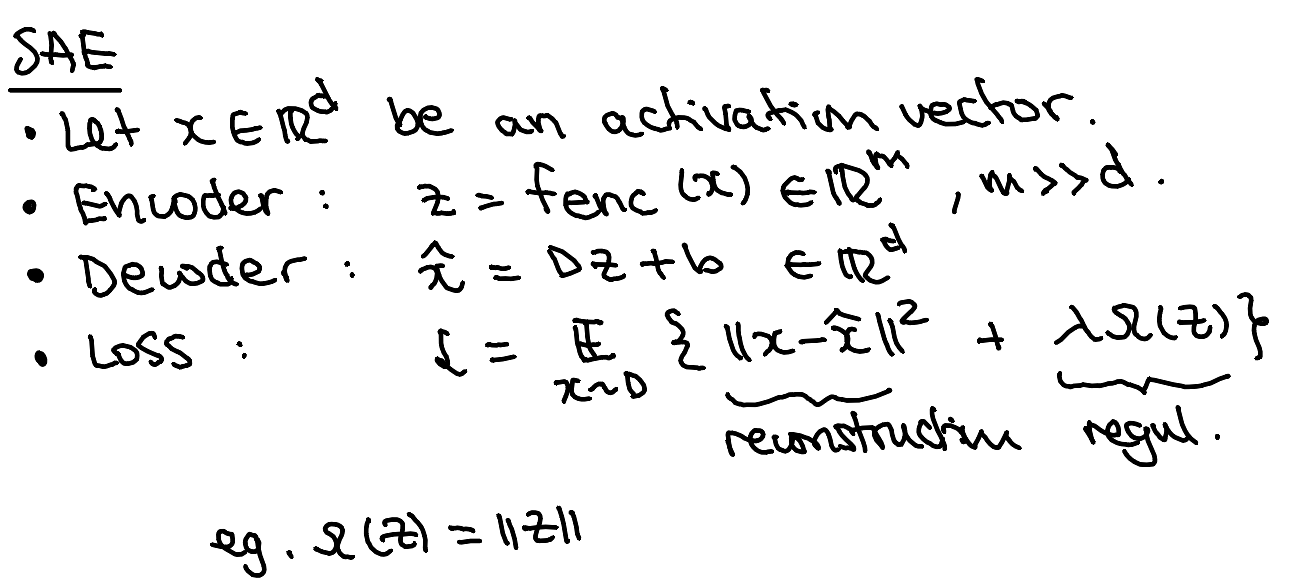 SAE
• Let x ∈ ℝ^d be an activation vector.
• Encoder : z = fenc (x) ∈ ℝ^m , m >> d .
• Decoder : x̂ = Dz + b ∈ ℝ^d
• Loss : ℒ = 𝔼 { ||x - x̂||² + λΩ(z) }
x~D
reconstruction regul.
eg. Ω(z) = ||z||